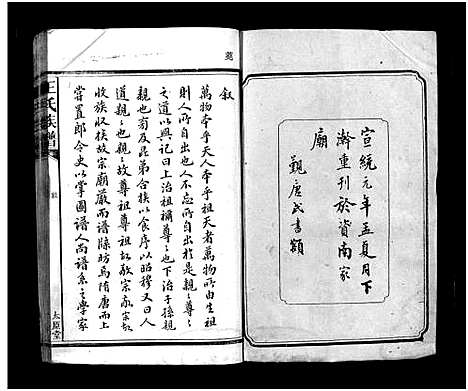 宣統元年孟夏月下
澣重刊於資南家
廟
觀唐氏書額
敘
萬物本乎天人本乎祖天者萬物所由生祖
則人所自出也人不忘所自出於是親之尊
之道以興記曰上治祖禰尊之也下治子孫親
親也旁及昆弟合族以食序以昭穆又曰人
道親之也親親故尊祖尊祖故敬宗敬宗故
收族收族故宗廟嚴而譜牒昉焉隋唐而上
嘗置郎令史以掌圖譜人尚譜系之學家
王氏族譜
敘
太原堂